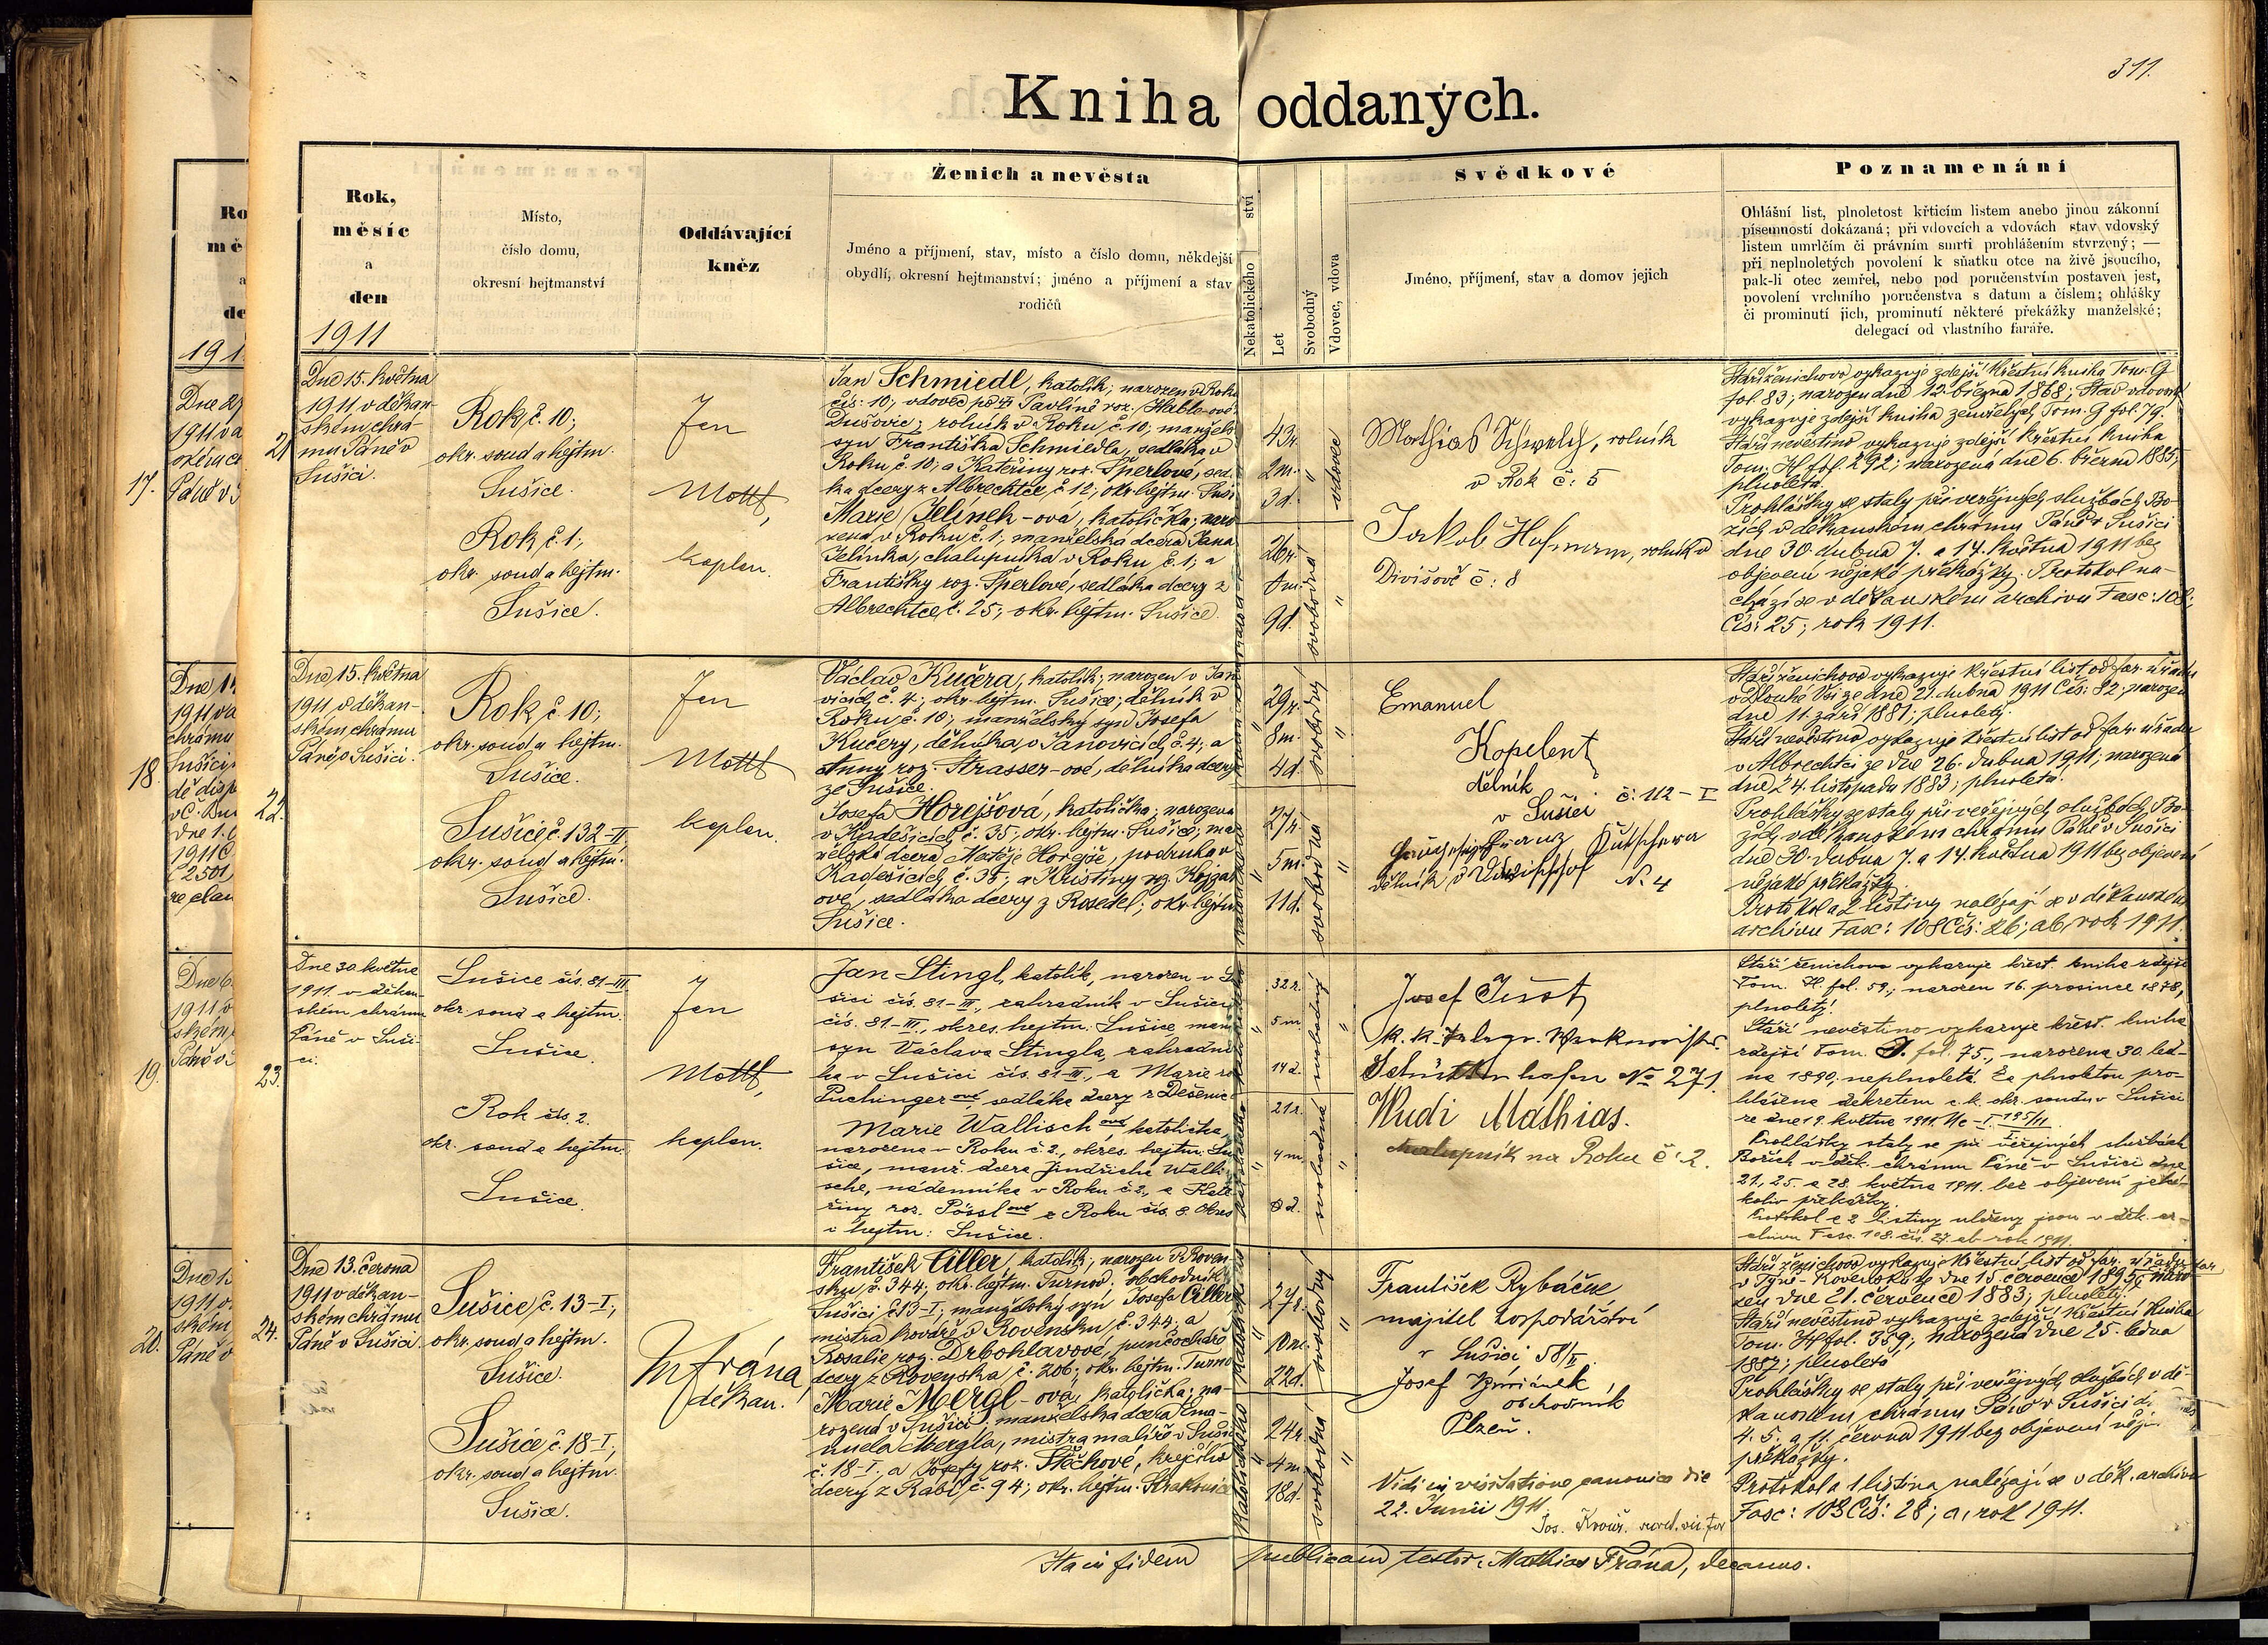 311.
Kniha oddaných.
Rok,
měsíc
a
den
1911
Místo,
číslo domu,
okresní hejtmanství
Oddávající
kněz
Ženich a nevěsta
Jméno a příjmení, stav, místo a číslo domu, někdejší
obydlí, okresní hejtmanství; jméno a příjmení a stav
rodičů
Nekatolického
ství
Let
Svobodný
Vdovec, vdova
Svědkové
Jméno, příjmení, stav a domov jejich
Poznamenání
Ohlášní list, plnoletost křticím listem anebo jinou zákonní
písemností dokázaná; při vdovcích a vdovách stav vdovský
listem umrlčím či právním smrti prohlášením stvrzený; —
při neplnoletých povolení k sňatku otce na živě jsoucího,
pak-li otec zemřel, nebo pod poručenstvím postaven jest,
povolení vrchního poručenstva s datum a číslem; ohlášky
či prominutí jich, prominutí některé překážky manželské;
delegací od vlastního faráře.
21
Dne 15. května
1911 v děkan-
ském chrá-
mu Páně v
Sušici.
Rok č. 10;
okr. soud a hejtm.
Sušice.
Rok č. 1;
okr. soud a hejtm.
Sušice.
Jan
Mottl,
kaplan.
Jan Schmiedl, katolík; narozen v Roku
čís: 10; vdovec po Pavlíně roz.
Dušovic; rolník v Roku č. 10; manžels.
syn Františka Schmiedla, sedláka v
Roku č. 10; a Kateřiny roz. Šperlové, sed.
ka dcery z Albrechtce, č. 12; okr. hejtm. Suši
Marie Jelinek-ová, katolička; naro
zena v Roku č. 1; manželská dcera Jana
Jelínka, chalupníka v Roku č. 1; a
Františky roz. Šperlové, sedláka dcery z
Albrechtce, č. 25; okr. hejtm. Sušice.
43r.
2m.
3d.
vdovec
26r.
9d.
svobodná
Mathias Schwelch, rolník
v Rok č: 5
Jakob Hofmann, rolník v
Divišově č: 8
Stáří ženichovo vykazuje zdejší křestní kniha Tom. G
fol. 83; narozen dne 12. března 1868; Stav vdovský
vykazuje zdejší kniha zemřelých Tom. G fol. 79.
Stáří nevěstino vykazuje zdejší křestní kniha
Tom. H fol. 292; narozená dne 6. března 1885;
plnoletá.
Prohlášky se staly při veřejných službách Bo-
žích v děkanském chrámu Páně v Sušici
dne 30. dubna 7. a 14. května 1911 bez
objevení nějaké překážky. Protokol na-
chází se v děkanském archivu Fasc: 108;
Čís: 25; rok 1911.
22.
Dne 15. května
1911 v děkan-
ském chrámu
Páně v Sušici.
Rok č 10;
okr. soud a hejtm.
Sušice.
Sušice č. 132-II
okr. soud a hejtm.
Sušice.
Jan
Mottl
kaplan.
Václav Kučera, katolík; narozen v Jan
vicích č. 4; okr. hejtm. Sušice; dělník v
Roku č. 10; manželský syn Josefa
Kučery, dělníka v Janovicích č. 4; a
Anny roz. Strasser-ové, dělníka dcery
ze Sušice.
Josefa Horejšová, katolička; narozena
v č. 35; okr. hejtm. Sušice; ma
nželská dcera Matěje Horejše, podruha v
č. 35; a Kristiny roz.
ové, sedláka dcery z okr. hejtm
Sušice.
29r.
8m.
4d.
svobodný
27r.
5m.
11d.
svobodná
Emanuel
Kopelent
dělník
v Sušici č. 112-I
Franz Kutschera
dělník v N. 4
Stáří ženichovo vykazuje křestní list od far. úřadu
v Dlouhé Vsi ze dne 21. dubna 1911 Čís: 82; narozen
dne 11. září 1881; plnoletý.
Stáří nevěstino vykazuje křestní list od far. úřadu
v Albrechtci ze dne 26. dubna 1911; narozená
dne 24. listopadu 1883; plnoletá.
Prohlášky se staly při veřejných službách Bo-
žích v děkanském chrámu Páně v Sušici
dne 30. dubna 7. a 14. května 1911 bez objevení
nějaké překážky.
Protokol a 2 listiny nalézají se v děkanském
archivu Fasc: 108 Čís: 26; ab, rok 1911.
23.
Dne 30. května
1911. v děkan-
ském chrámu
Páně v Suši-
ci.
Sušice čís. 81-III
okr. soud a hejtm.
Sušice.
Rok čís. 2.
okr. soud a hejtm.
Sušice.
Jan
Mottl,
kaplan.
Jan Stingl, katolík, narozen v Su
šici čís. 81-III., zahradník v Sušici
čís. 81-III., okres. hejtm. Sušice manž
syn Václava Stingla, zahradní
ka v Sušici čís. 81-III., a Marie ro
Puchingerové, sedláka dcery z Dešenic
Marie Wallischová katolička,
narozena v Roku č. 2., okres. hejtm. Su
šice, manž. dcera Jindřicha Walli
sche, nádenníka v Roku č. 2., a Kate
řiny roz. Pösslové z Roku čís. 8. okres
i hejtm: Sušice.
32 r.
5 m
14 d.
svobodný
21 r.
4 m.
svobodná
Josef
k. k.
Schüttenhofen No 271
Wudi Mathias.
chalupník na Roku č. 2.
Stáří ženichovo vykazuje křest. kniha zdejší
Tom. H. fol. 59.; narozen 16. prosince 1878,
plnoletý.
Stáří nevěstino vykazuje křest. kniha
zdejší Tom. J. fol. 75., narozena 30. led-
na 1890, neplnoletá. Za plnoletou pro-
hlášena dekretem c. k. okr. soudu v Sušici
ze dne 19. května 1911. Nc-I.
Prohlášky staly se při veřejných službách
Božích v děk. chrámu Páně v Sušici dne
21, 25. a 28. května 1911. bez objevení jaké-
koliv překážky.
Protokol a 2 listiny uloženy jsou v děk. ar-
chivu Fasc. 108. čís. 27. ab rok 1911.
24.
Dne 13. června
1911 v děkan-
ském chrámu
Páně v Sušici
Sušice č. 13-I;
okr. soud a hejtm.
Sušice.
Sušice č. 18-I;
okr. soud a hejtm.
Sušice.
Frána,
děkan.
František Ciller, katolík; narozen v Roven-
sku č. 344; okr. hejtm. Turnov; obchodník v
Sušici č. 13-I; manželský syn Josefa Cillera
mistra kováře v Rovensku, č. 344; a
Rosalie roz. Drbohlavové, punčocháře
dcery z Rovenska, č. 206; okr. hejtm. Turno
Marie Mergl-ová, katolička; na-
rozená v Sušici; manželská dcera Ema-
nuela Mergla, mistra malíře v Sušici
č. 18-I. a Josefy roz. Štěčkové, krejčího
dcery z Rabí č. 94; okr. hejtm. Strakonice
27r.
22d.
svobodný
24r.
4m.
18d.
svobodná
František Rybáček
majitel hospodářství
v Sušici 58/II
Josef
obchodník
Plzeň.
Vidi in visitatione canonica die
22. Junii 1911
Jos.
Stáří ženichovo vykazuje křestní list od far. úřadu
v Týně-Rovensku ze dne 15. července 1895; naro
zen dne 21. července 1883; plnoletý.
Stáří nevěstino vykazuje zdejší křestní kniha
Tom. H fol. 359; narozená dne 25. ledna
1887; plnoletá
Prohlášky se staly při veřejných službách v dě-
kanském chrámu Páně v Sušici d.
4. 5. a 11. června 1911 bez objevení něja
překážky.
Protokol a 1 listina nalézají se v děk. archivu
Fasc: 108 Čís: 28; a, rok 1911.
Ita in fidem publicam testor, Mathias Frána, decanus.
17.
18.
19.
20.